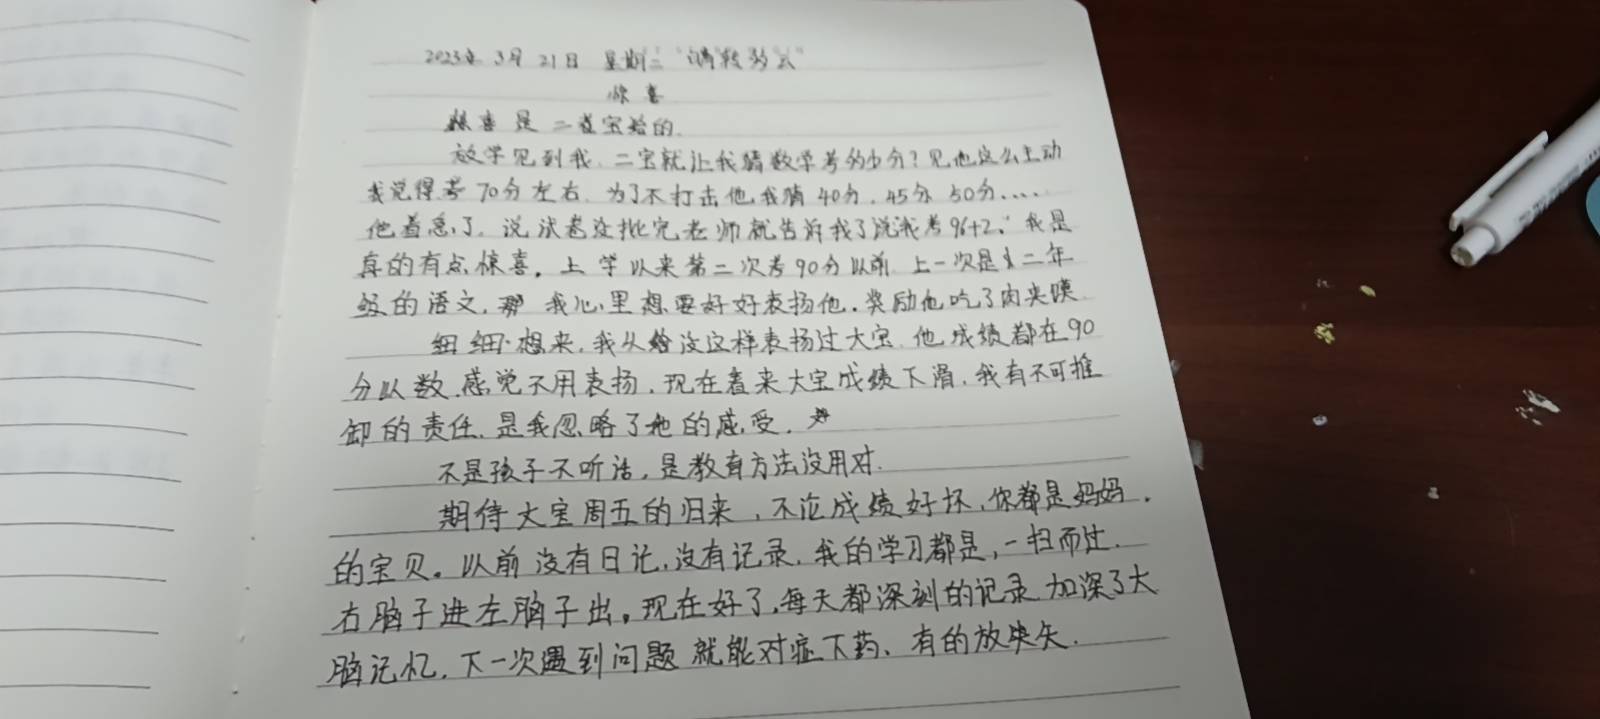 2023年 3月 21日 星期二 "晴转多云"
惊喜
惊喜是二宝给的.
放学见到我.二宝就让我猜数学考多少分?见他这么主动
我觉得考70分左右.为了不打击他,我猜40分.45分 50分....
他着急了.说试卷没批完老师就告诉我了说我考96+2.我是
真的有点惊喜.上学以来第二次考90分以前.上一次是二年
级的语文.我心里想要好好表扬他.奖励他吃了肉夹馍.
细细想来,我从没这样表扬过大宝.他成绩都在90
分以数.感觉不用表扬.现在看来大宝成绩下滑.我有不可推
卸的责任.是我忽略了他的感受.
不是孩子不听话,是教育方法没用对.
期待大宝周五的归来,不论成绩好坏,你都是妈妈.
的宝贝。以前没有日记,没有记录,我的学习都是,一扫而过.
右脑子进左脑子出。现在好了,每天都深刻的记录 加深了大
脑记忆,下一次遇到问题 就能对症下药、有的放矢.